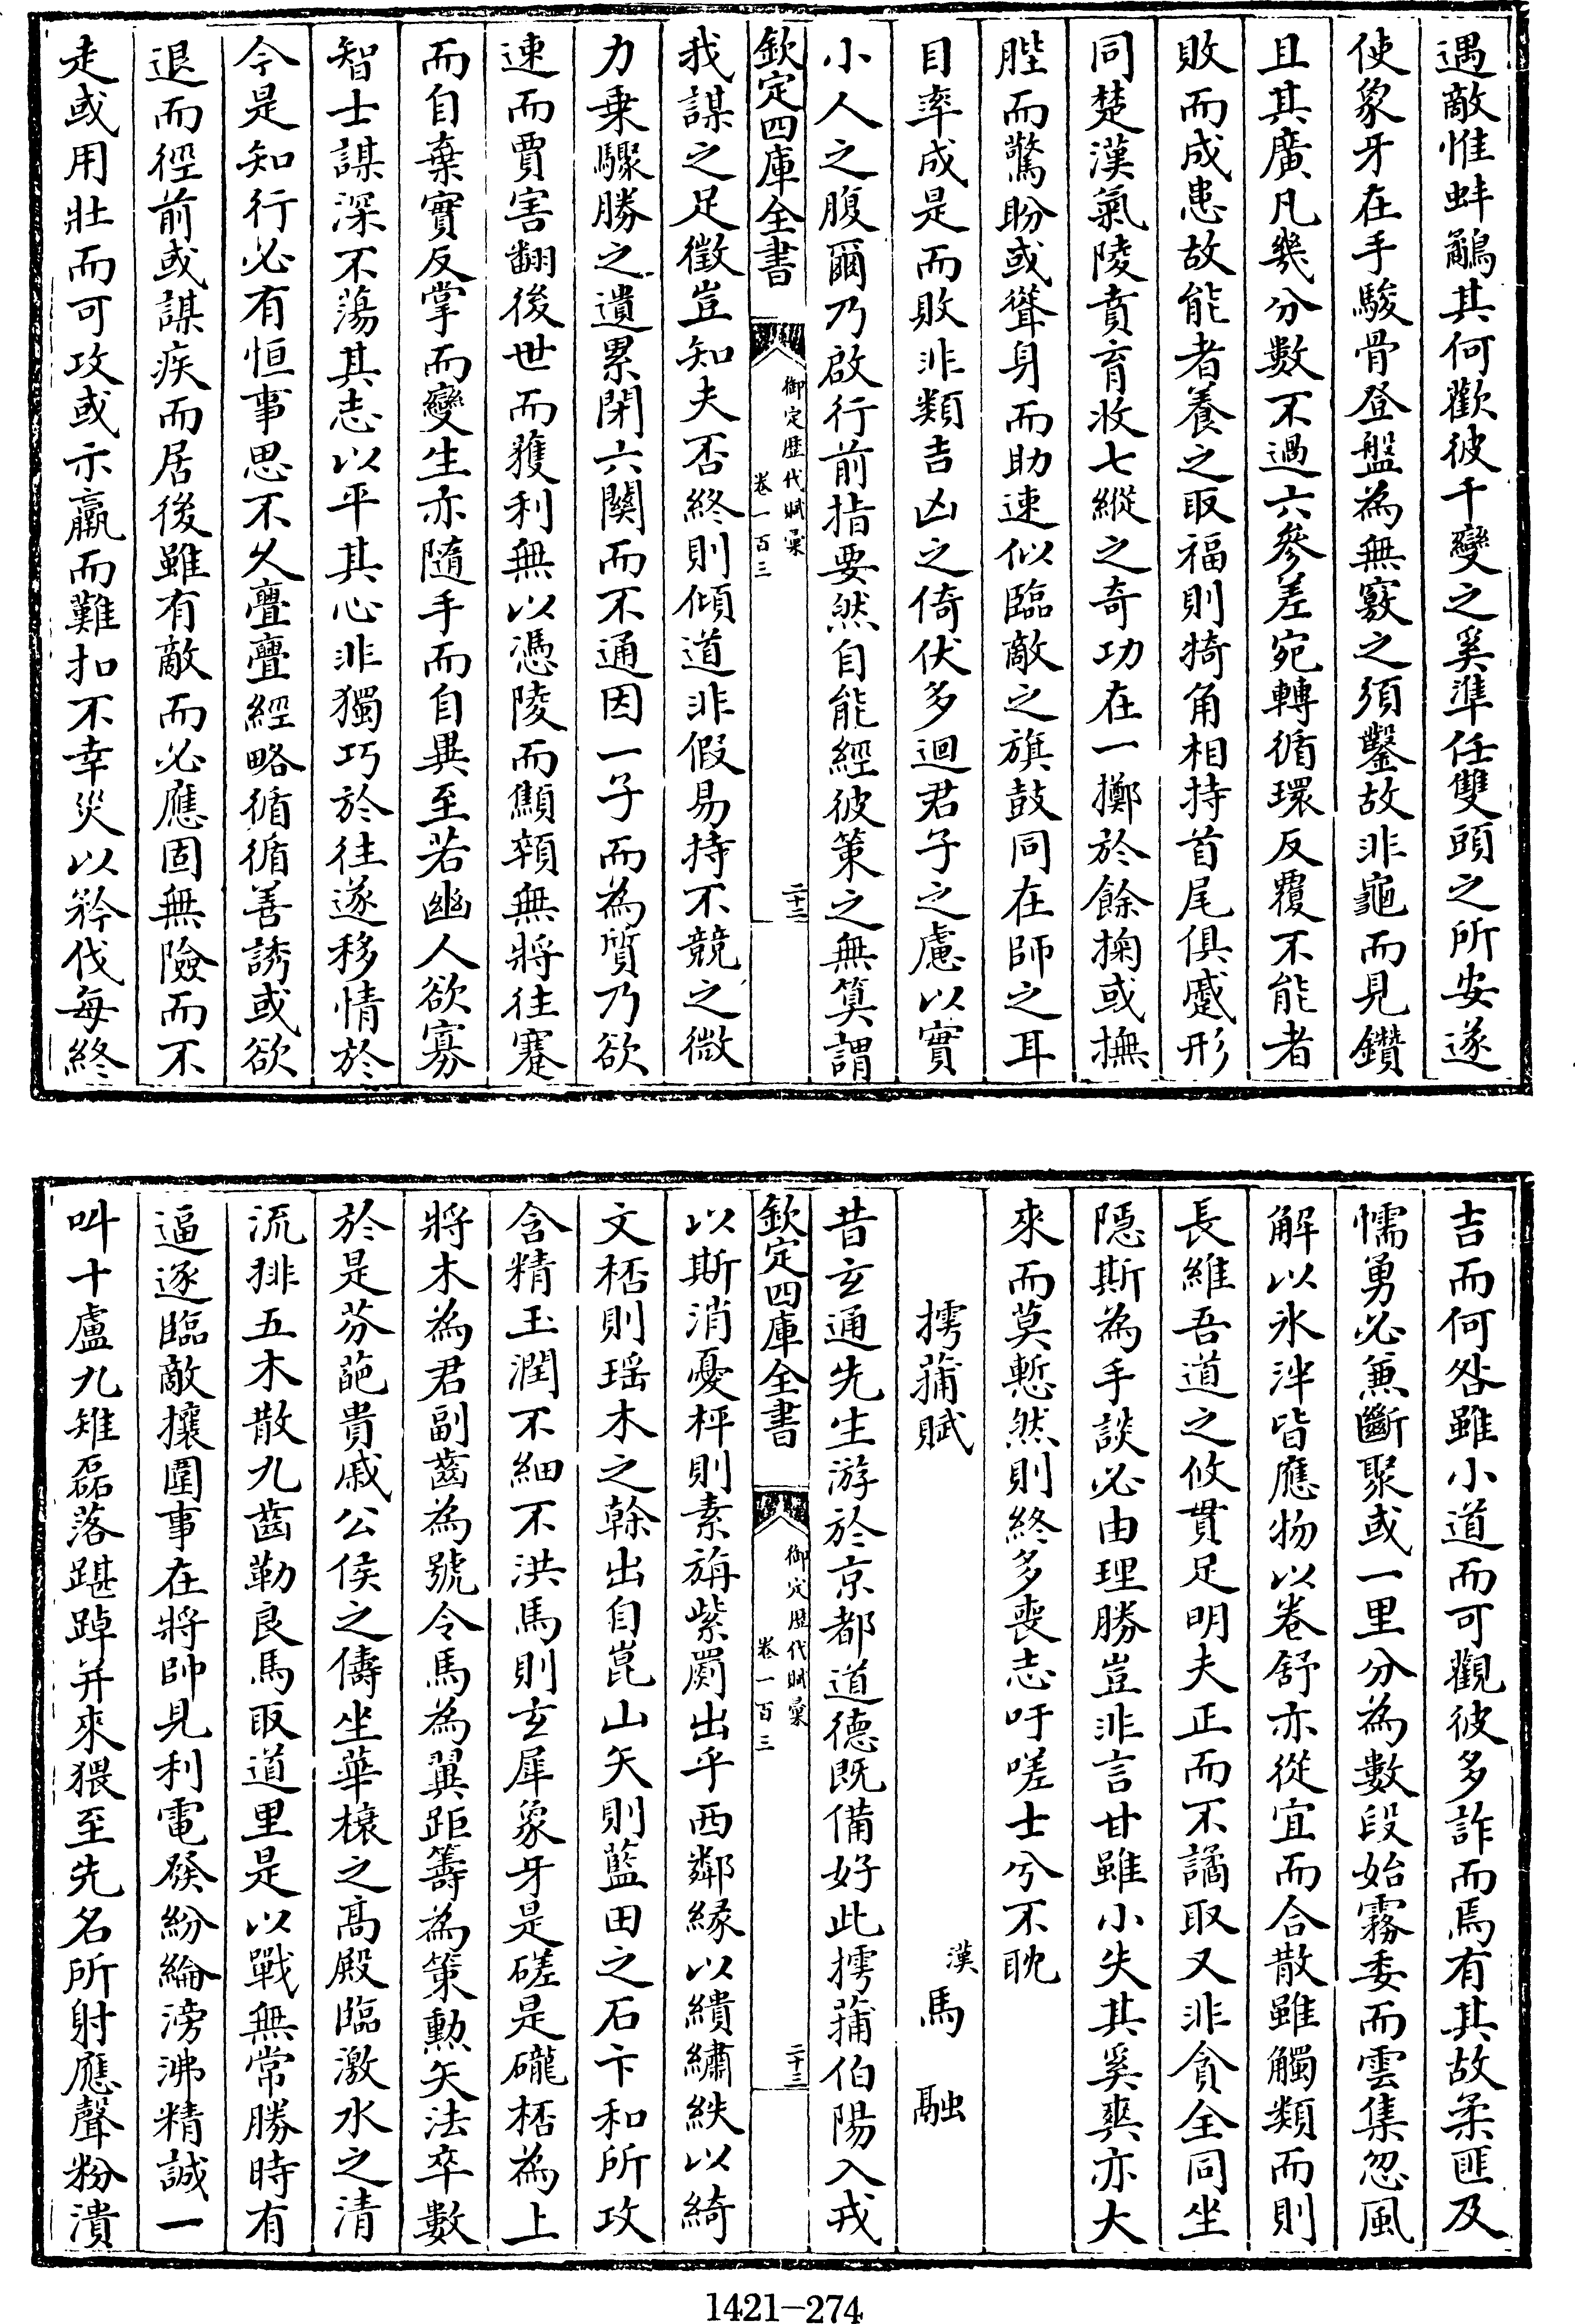 遇敵惟蚌鷸其何歡彼千變之奚準任雙頭之所安遂
使象牙在手駿骨登盤為無竅之須鑿故非龜而見鑽
且其廣凡幾分數不過六參差宛轉循環反覆不能者
敗而成患故能者養之取福則犄角相持首尾俱蹙形
同楚漢氣陵賁育收七縱之奇功在一擲於餘掬或撫
髀而驚盼或聳身而助速似臨敵之旗鼓同在師之耳
目率成是而敗非類吉凶之倚伏多迴君子之慮以實
小人之腹爾乃啟行前指要然自能經彼策之無算謂
欽定四庫全書
御定歴代賦彙
卷一百三
二十二
我謀之足徵豈知夫否終則傾道非假易持不競之微
力乗驟勝之遺累閉六關而不通因一子而為質乃欲
速而賈害翻後世而獲利無以憑陵而顯顇無將往蹇
而自棄實反掌而變生亦隨手而自異至若幽人欲寡
智士謀深不蕩其志以平其心非獨巧於往遂移情於
今是知行必有恒事思不久亹亹經略循循善誘或欲
退而徑前或謀疾而居後雖有敵而必應固無險而不
走或用壯而可攻或示羸而難扣不幸災以矜伐每終
吉而何咎雖小道而可觀彼多詐而焉有其故柔匪及
懦勇必兼斷聚或一里分為數段始霧委而雲集忽風
解以氷泮皆應物以卷舒亦從宜而合散雖觸類而則
長維吾道之攸貫足明夫正而不譎取又非貪全同坐
隱斯為手談必由理勝豈非言甘雖小失其奚爽亦大
來而莫慙然則終多喪志吁嗟士兮不耽
摴蒱賦
漢
馬融
昔玄通先生游於京都道德既備好此摴蒱伯陽入戎
欽定四庫全書
御定歴代賦彙
卷一百三
二十三
以斯消憂枰則素旃紫罽出乎西鄰緣以繢繡紩以綺
文桮則瑶木之幹出自崑山矢則藍田之石卞和所攻
含精玉潤不細不洪馬則玄犀象牙是磋是礲桮為上
將木為君副齒為號令馬為翼距籌為策勲矢法卒數
於是芬葩貴戚公侯之儔坐華榱之高殿臨激水之清
流排五木散九齒勒良馬取道里是以戰無常勝時有
逼逐臨敵攘圍事在將帥見利電發紛綸滂沸精誠一
叫十盧九雉磊落踸踔并來猥至先名所射應聲粉潰
1421—274